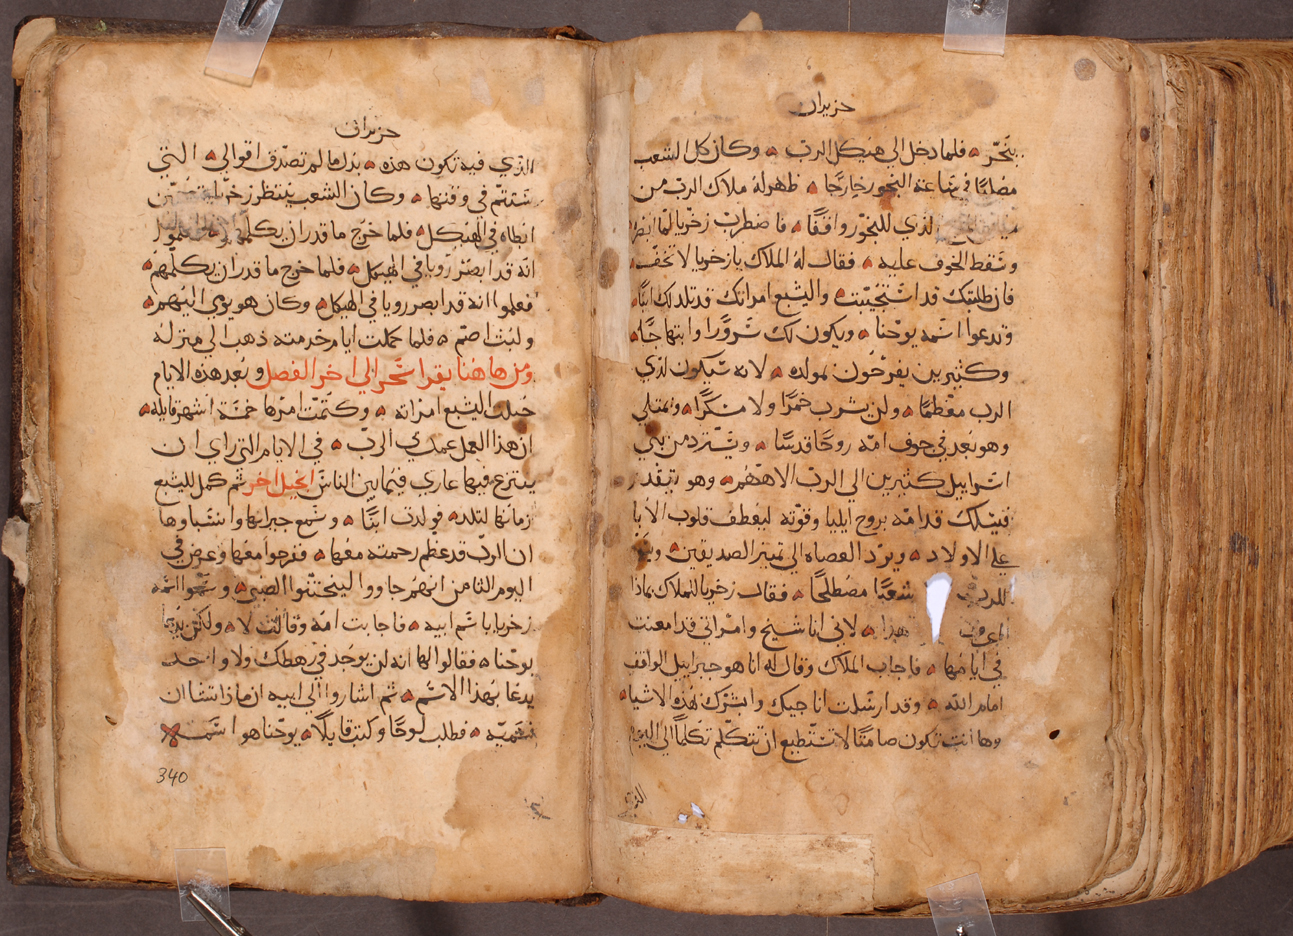 حزيران
يتبخّر ۞ فلما دخل الي هيكل الربّ ۞ وكان كل الشعب
مصليًا في ساعة البخور خارجًا ۞ ظهر له ملاك الربّ من
الذي للبخور واقفًا ۞ فاضطربَ زخريا لمّا
وسقط الخوف عليه ۞ فقال لهُ الملاك يا زخريا لا تخفْ ۞
فان طلبتك قد استجيبت ۞ واليشبع امراتك قد تلد لك ابنًا
وتدعوا اسمه يوحنا ۞ ويكون لك سرورًا وابتهاجًا ۞
وكثيرين يفرحون لمولده ۞ لانه سيكون لذي
الرب معظمًا ۞ ولن يشرب خمرًا ولا مسكرًا ۞ ويمتلي
وهو بعد في جوف امّه روحًا قدسًا ۞ ويسترد من بني
اسراييل كثيرين الي الربّ الاههم ۞ وهو يتقدم
فيسلك قدامه بروح ايليا وقوته ليعطف قلوب الابا
علي الاولاد ۞ ويردّ العصاه الي تمييز الصديقين ۞
للربّ شعبًا مصطلحًا ۞ فقال زخريا للملاك بماذا
هذا ۞ لاني انا شيخ وامراتي قد امعنت
في ايامها ۞ فاجاب الملاك وقال له انا هو جبراييل الواقف
امام الله ۞ وقد ارسلت اناجيك وابشرك بهذه الاشيا ۞
وها انت تكون صامتًا لا تستطيع ان تتكلّم تكلمًا الي اليوم
حزيران
الذي فيه تكون هذه ۞ بدل ما لم تصدّق اقوالي ۞ التي
ستتمّ في وقتها ۞ وكان الشعب ينتظر زخريا
ابطاه في الهيكل ۞ فلما خرج ما قدر ان يكلمهم
انه قد ابصر رويا في الهيكل ۞ فلما خرج ما قدر ان يكلّمهم ۞
فعلموا انه قد ابصر رويا في الهيكل ۞ وكان هو يومي اليهم ۞
ولبث اصمّ ۞ فلما كملت ايام خدمته ذهب الي منزله
ومن هاهنا يقرا سَحر الي اخر الفصل وبعد هذه الايام
حبلت اليشبع امراته ۞ وكتمت امرها خمسة اشهر قايله ۞
ان هذا العمل عمل بي الربّ ۞ في الايام التي راي ان
ينتزع فيها عاري فيما بين الناس انجيل اخر ثم كمل لليشبع
زمانها لتلد ۞ فولدت ابنًا ۞ وسمع جيرانها وانسباوها
ان الربّ قد عظم رحمته معها ۞ ففرحوا معها وعرض في
اليوم الثامن انهم جاووا ليختنوا الصبي ۞ وسمّوا اسمه
زخريا باسم ابيه ۞ فاجابت امّه وقالت لا ۞ ولكن يدعا
يوحنا ۞ فقالوا لها انه لن يوجد في رهطك ولا واحد
يدعا بهذا الاسم ۞ ثم اشاروا الي ابيه ان ماذا تشا ان
تسميّه ۞ فطلب لوحًا وكتب قايلًا ۞ يوحنا هو اسمه
340